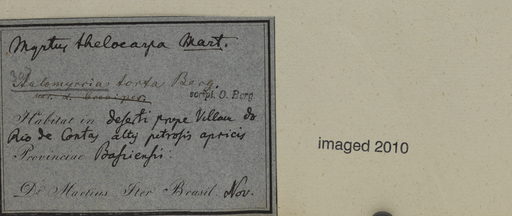 Myrtus thelocarpa Mart.
Calomyrcia torta Berg.
script. O. Berg
Habitat in deserti prope Villam do
Rio de Contas, altis petrosis apricis
Provinciae Bahiensis.
De Martius Iter Brasil. Nov.
imaged 2010